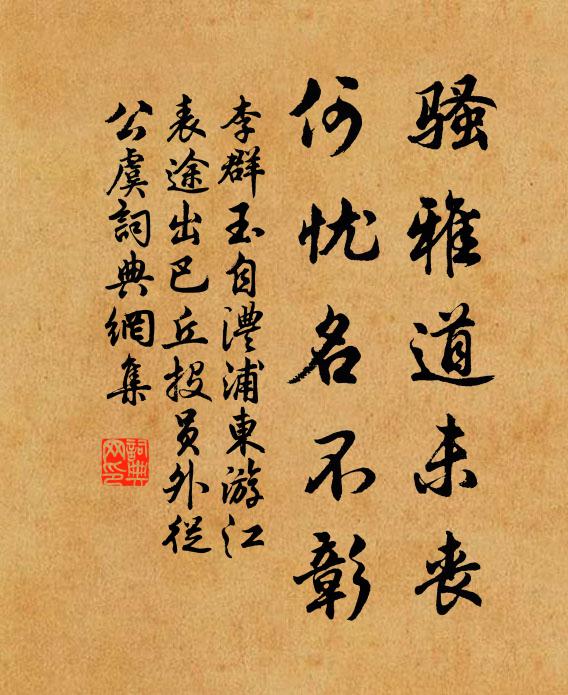 骚雅道未丧
何忧名不彰
李群玉自澧浦東游江
表途出巴丘投员外從
公虞詞典網集
詞典网印